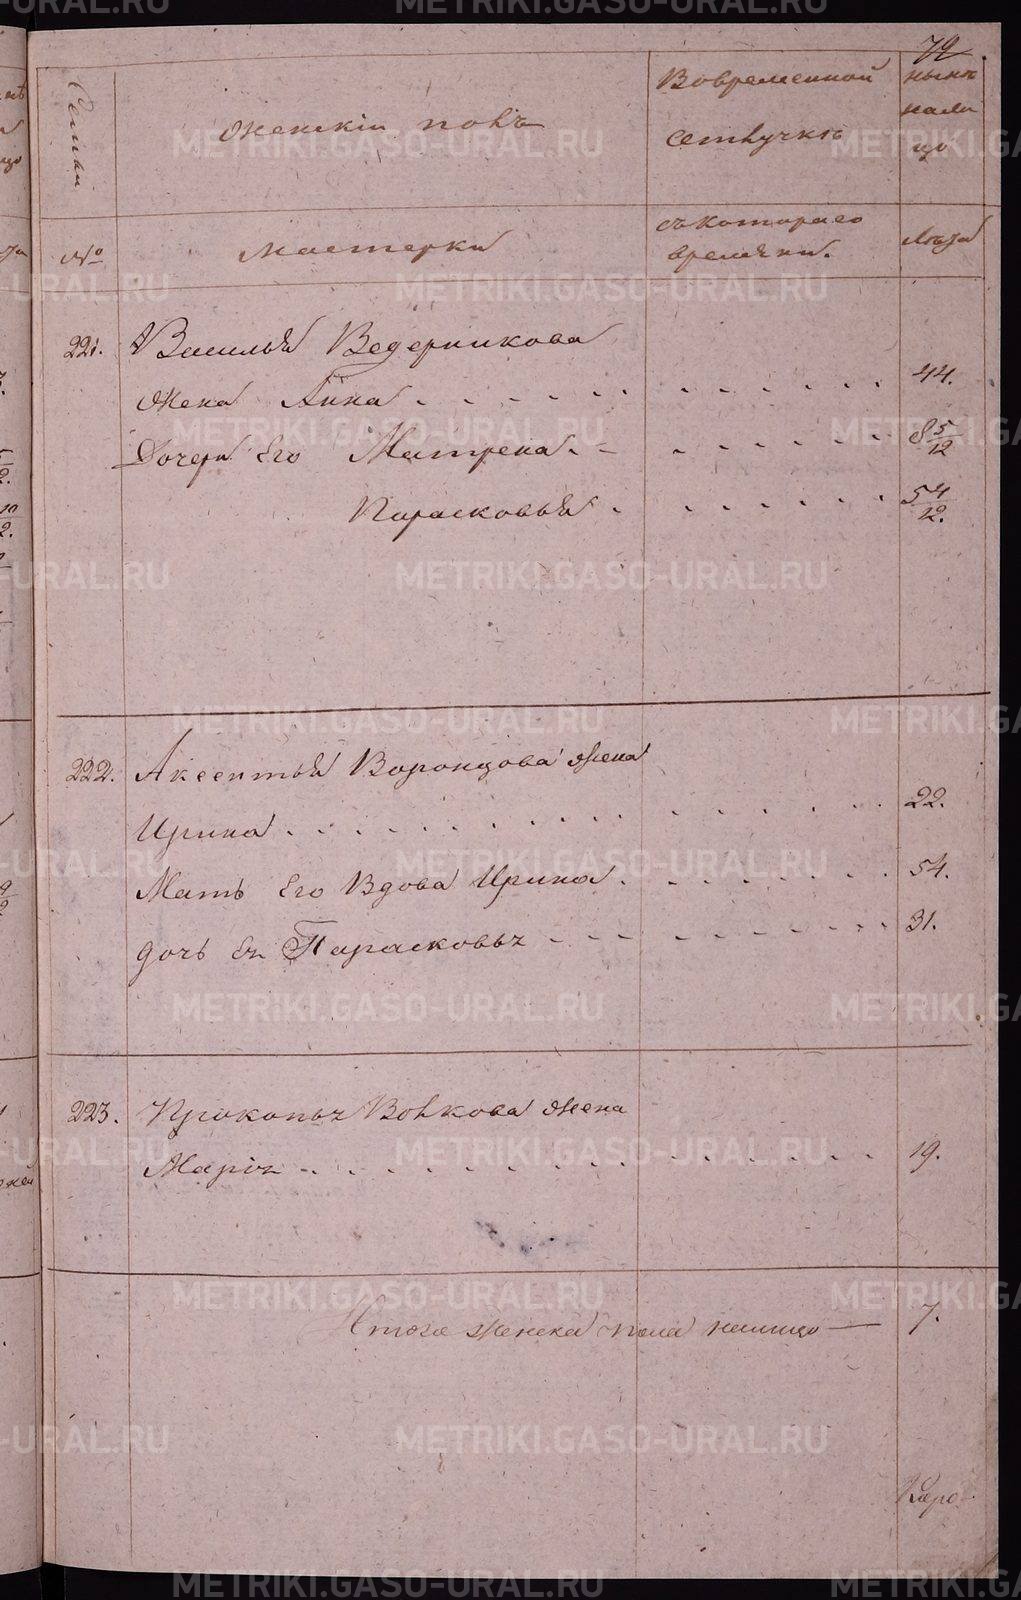 72
Семьи
женскій полъ
Вовременной
отлучкѣ
нынѣ
нали
цо
№
Мастерки
съкотораго
времѣни.
Лѣта
221.
Василья Ведерникова
жена Анна 44.
Дочери Его Матрена 8 5/12
Парасковья 5 4/12.
222.
Аксентья Воронцова жена
Ирина 22.
Мать Его Вдова Ирина 54.
дочь Ея Парасковья 31.
223.
Прокопья Волкова жена
Марія 19.
Итого женска пола налицо — 7.
METRIKI.GASO-URAL.RU